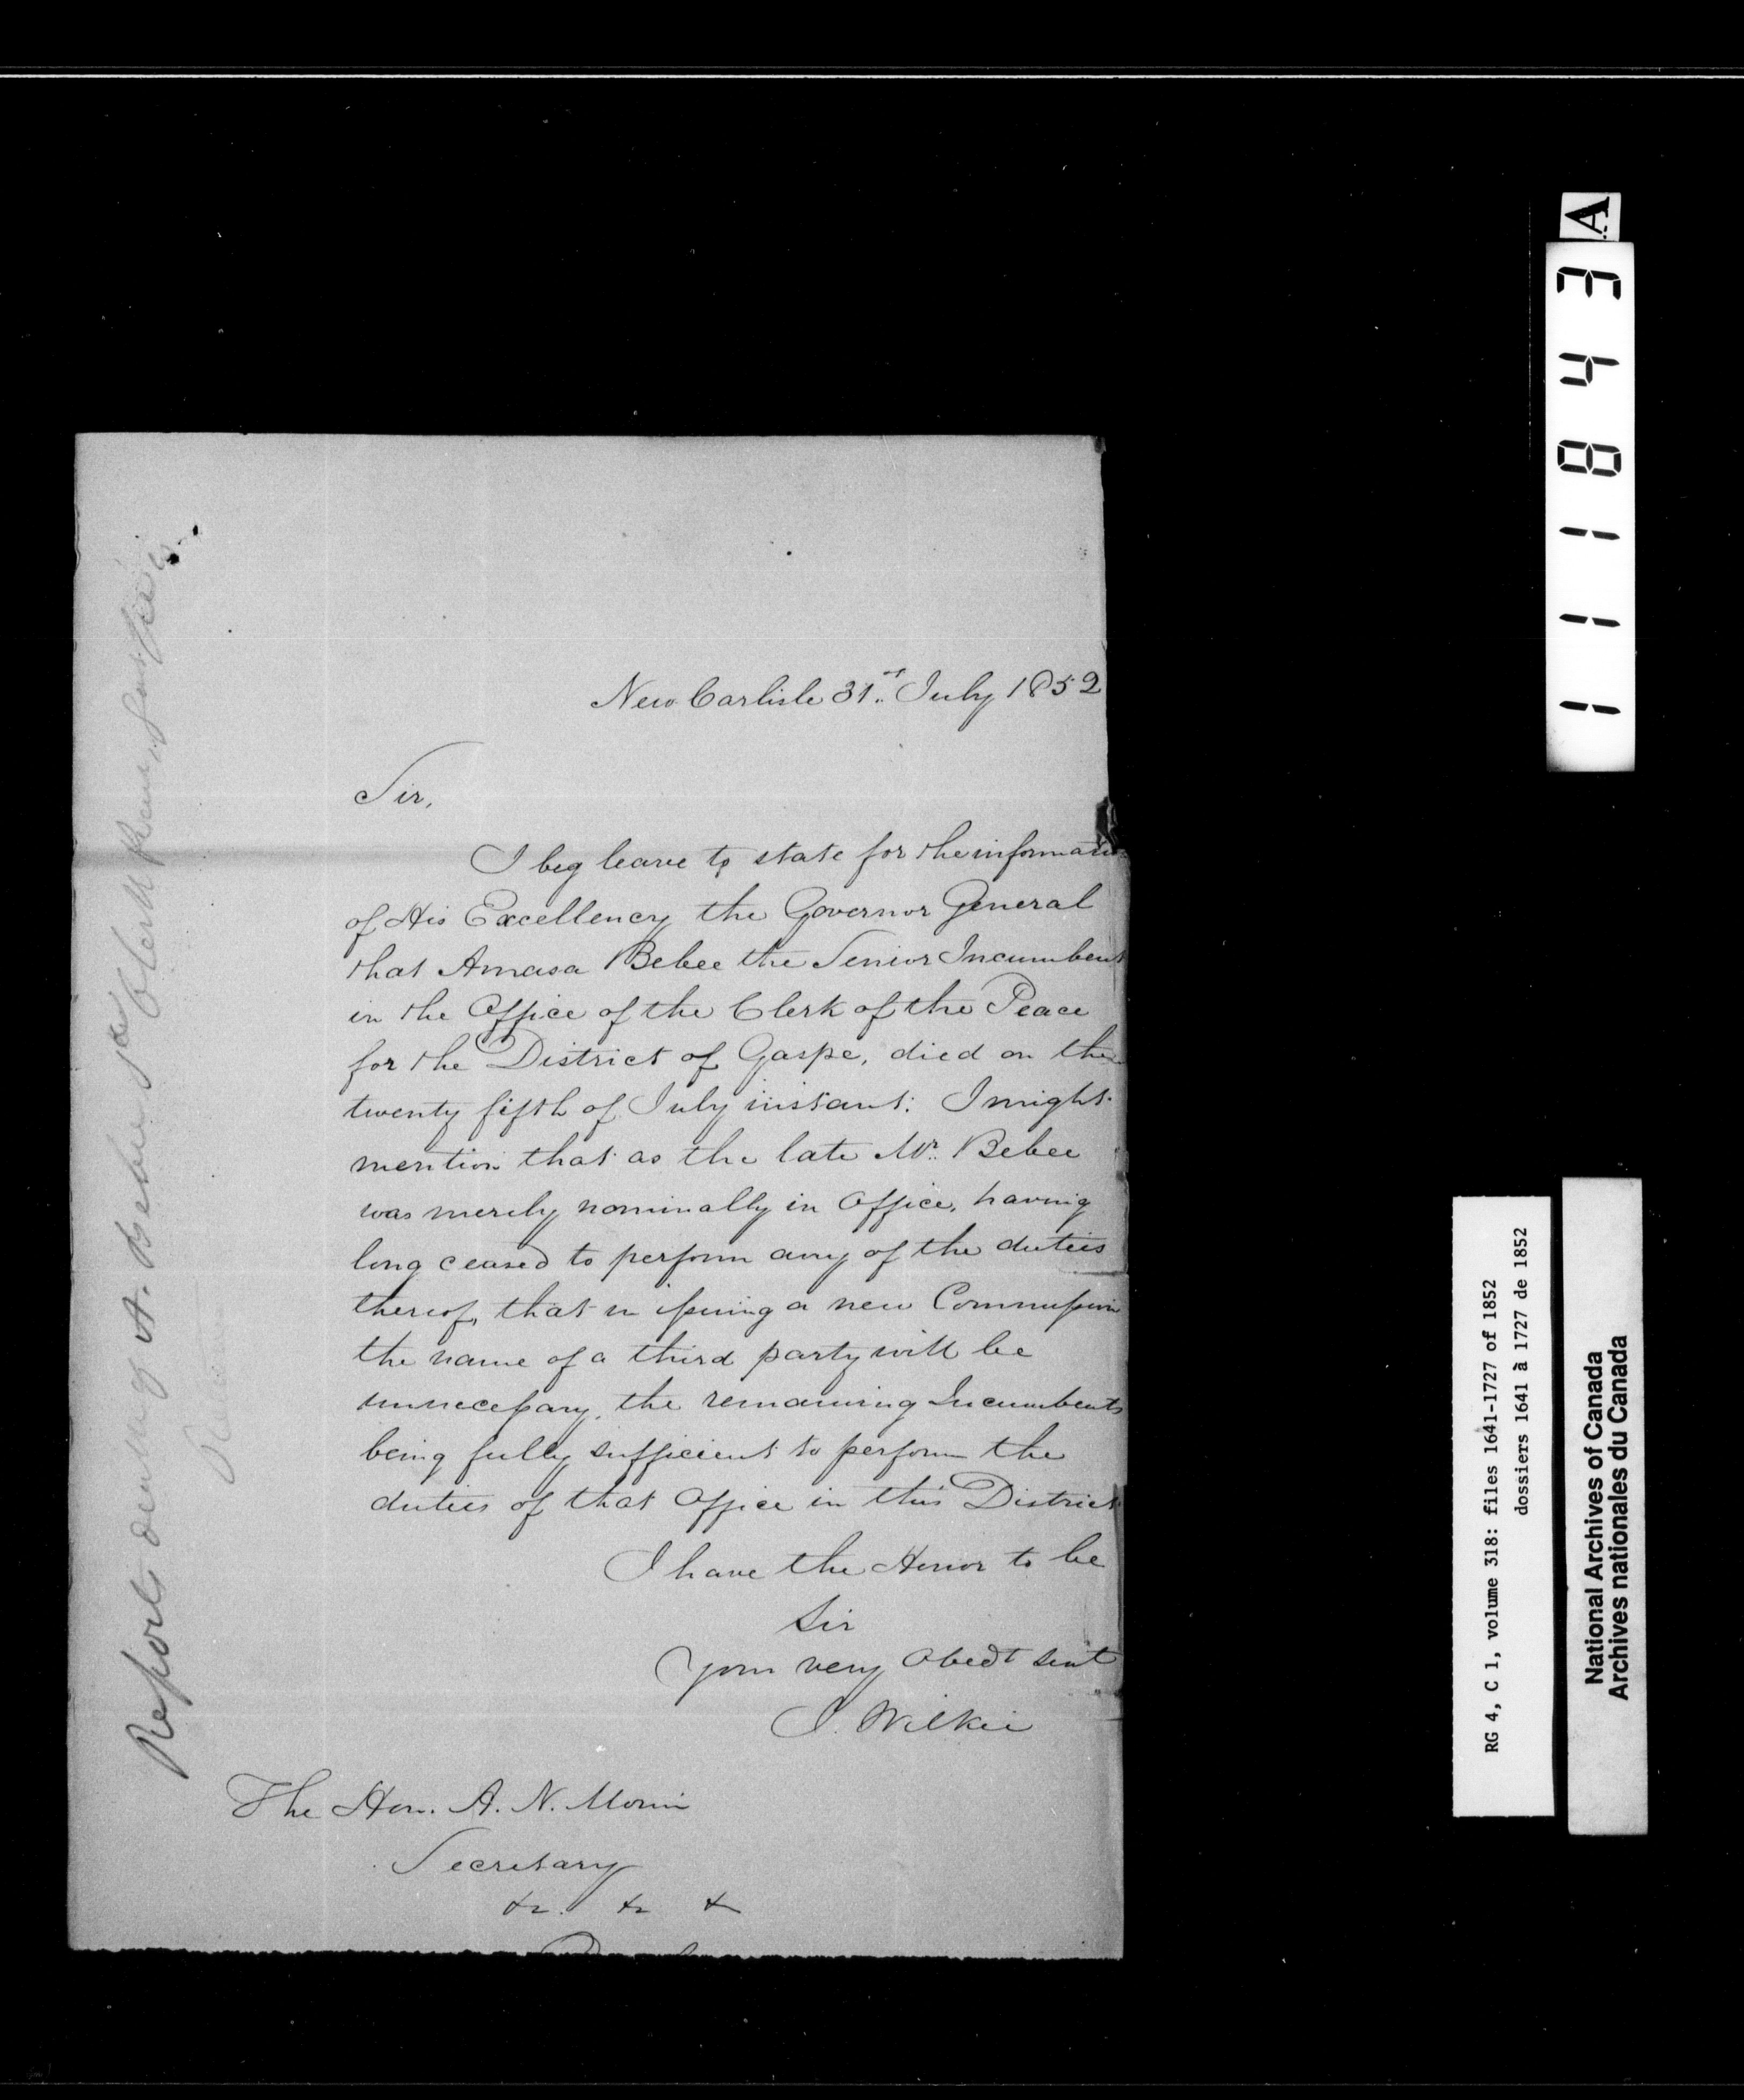 New Carlisle 31st July 1852
Sir,
I beg leave to state for the information
of His Excellency the Governor General
that Amasa Bebee the Senior Incumbent
in the Office of the Clerk of the Peace
for the District of Gaspe, died on the
twenty fifth of July instant: I might
mention that as the late Mr. Bebee
was merely nominally in Office, having
long ceased to perform any of the duties
thereof, that in issuing a new Commission
the name of a third party will be
unnecessary, the remaining Incumbents
being fully sufficient to perform the
duties of that Office in this District
I have the Honor to be
Sir
Your very Obedt Servt
J. Wilkie
The Hon. A. N. Morin
Secretary
&c. &c &
Reports death of A. Bebee Clerk Peace, Gaspé
111843
A
RG 4, C 1, volume 318: files 1641-1727 of 1852
dossiers 1641 à 1727 de 1852
National Archives of Canada
Archives nationales du Canada